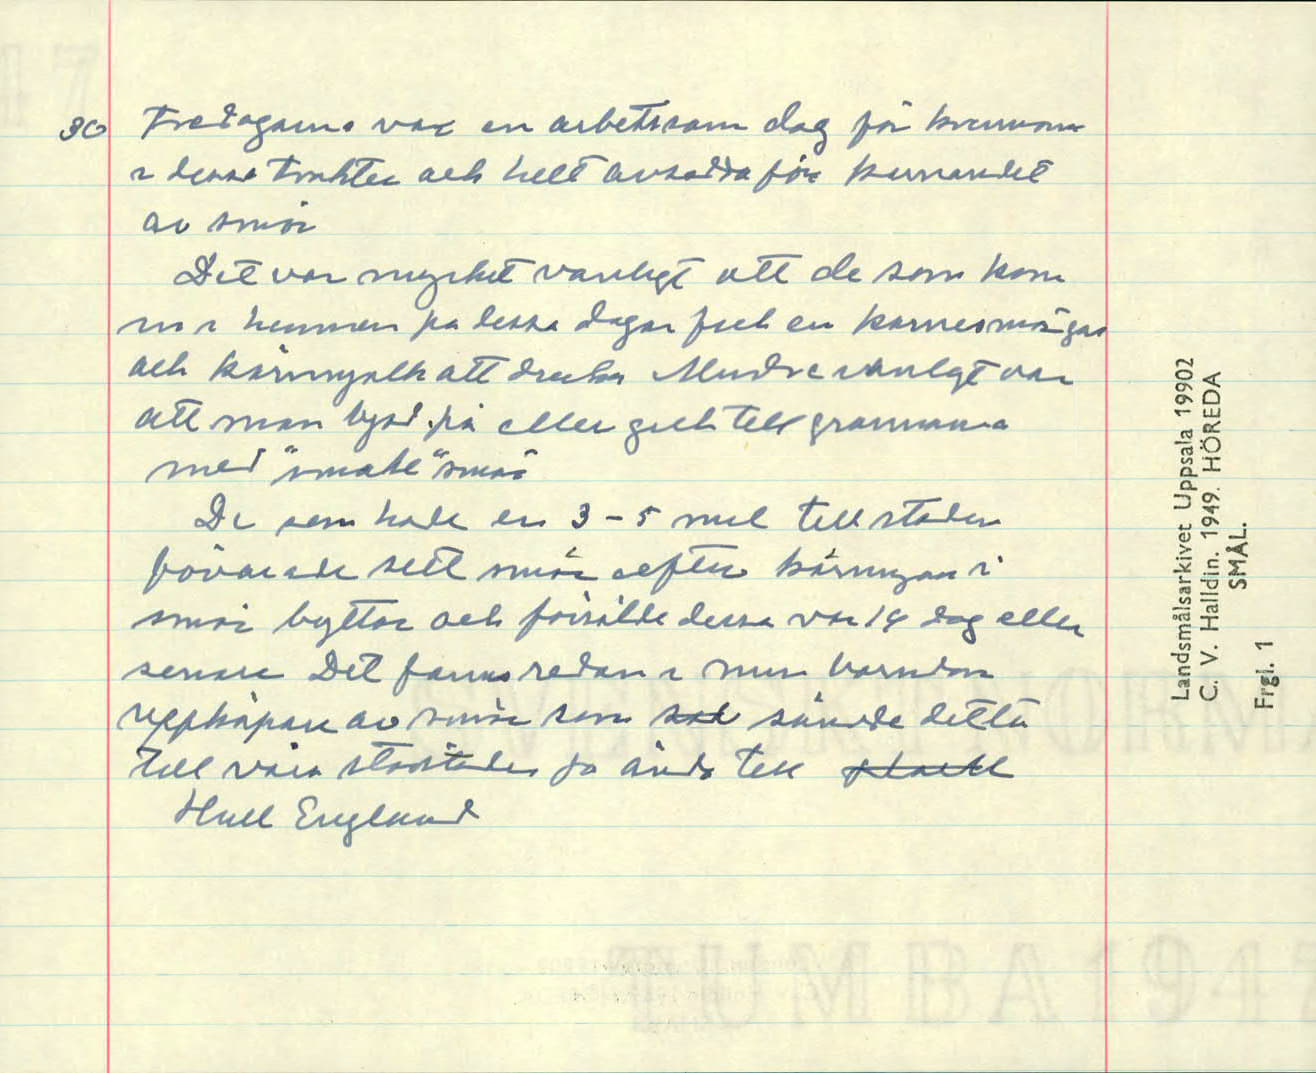 30 Fredagarna var en arbetssam dag för kvinnorna
i dessa trakter och helt avsedda för kärnandet
av smör
Det var mycket vanligt att de som kom
in i hemmen på dessa dagar fick en smörgås
och kärnmjölk att dricka Mindre vanligt var
att man bjöd på eller gick till grannarna
med "smak" smör
De som hade en 3-5 mil till staden
förvarade sitt smör efter kärningen i
smör byttor och försålde dessa var 14 dag eller
senare Det fanns redan i min barndom
uppköpare av smör som sände detta
till våra storstäder ja ända till
Hull England
Landsmålsarkivet Uppsala 19902
C. V. Halldin. 1949. HÖREDA
SMÅL.
Frgl. 1
TUMBA 1947